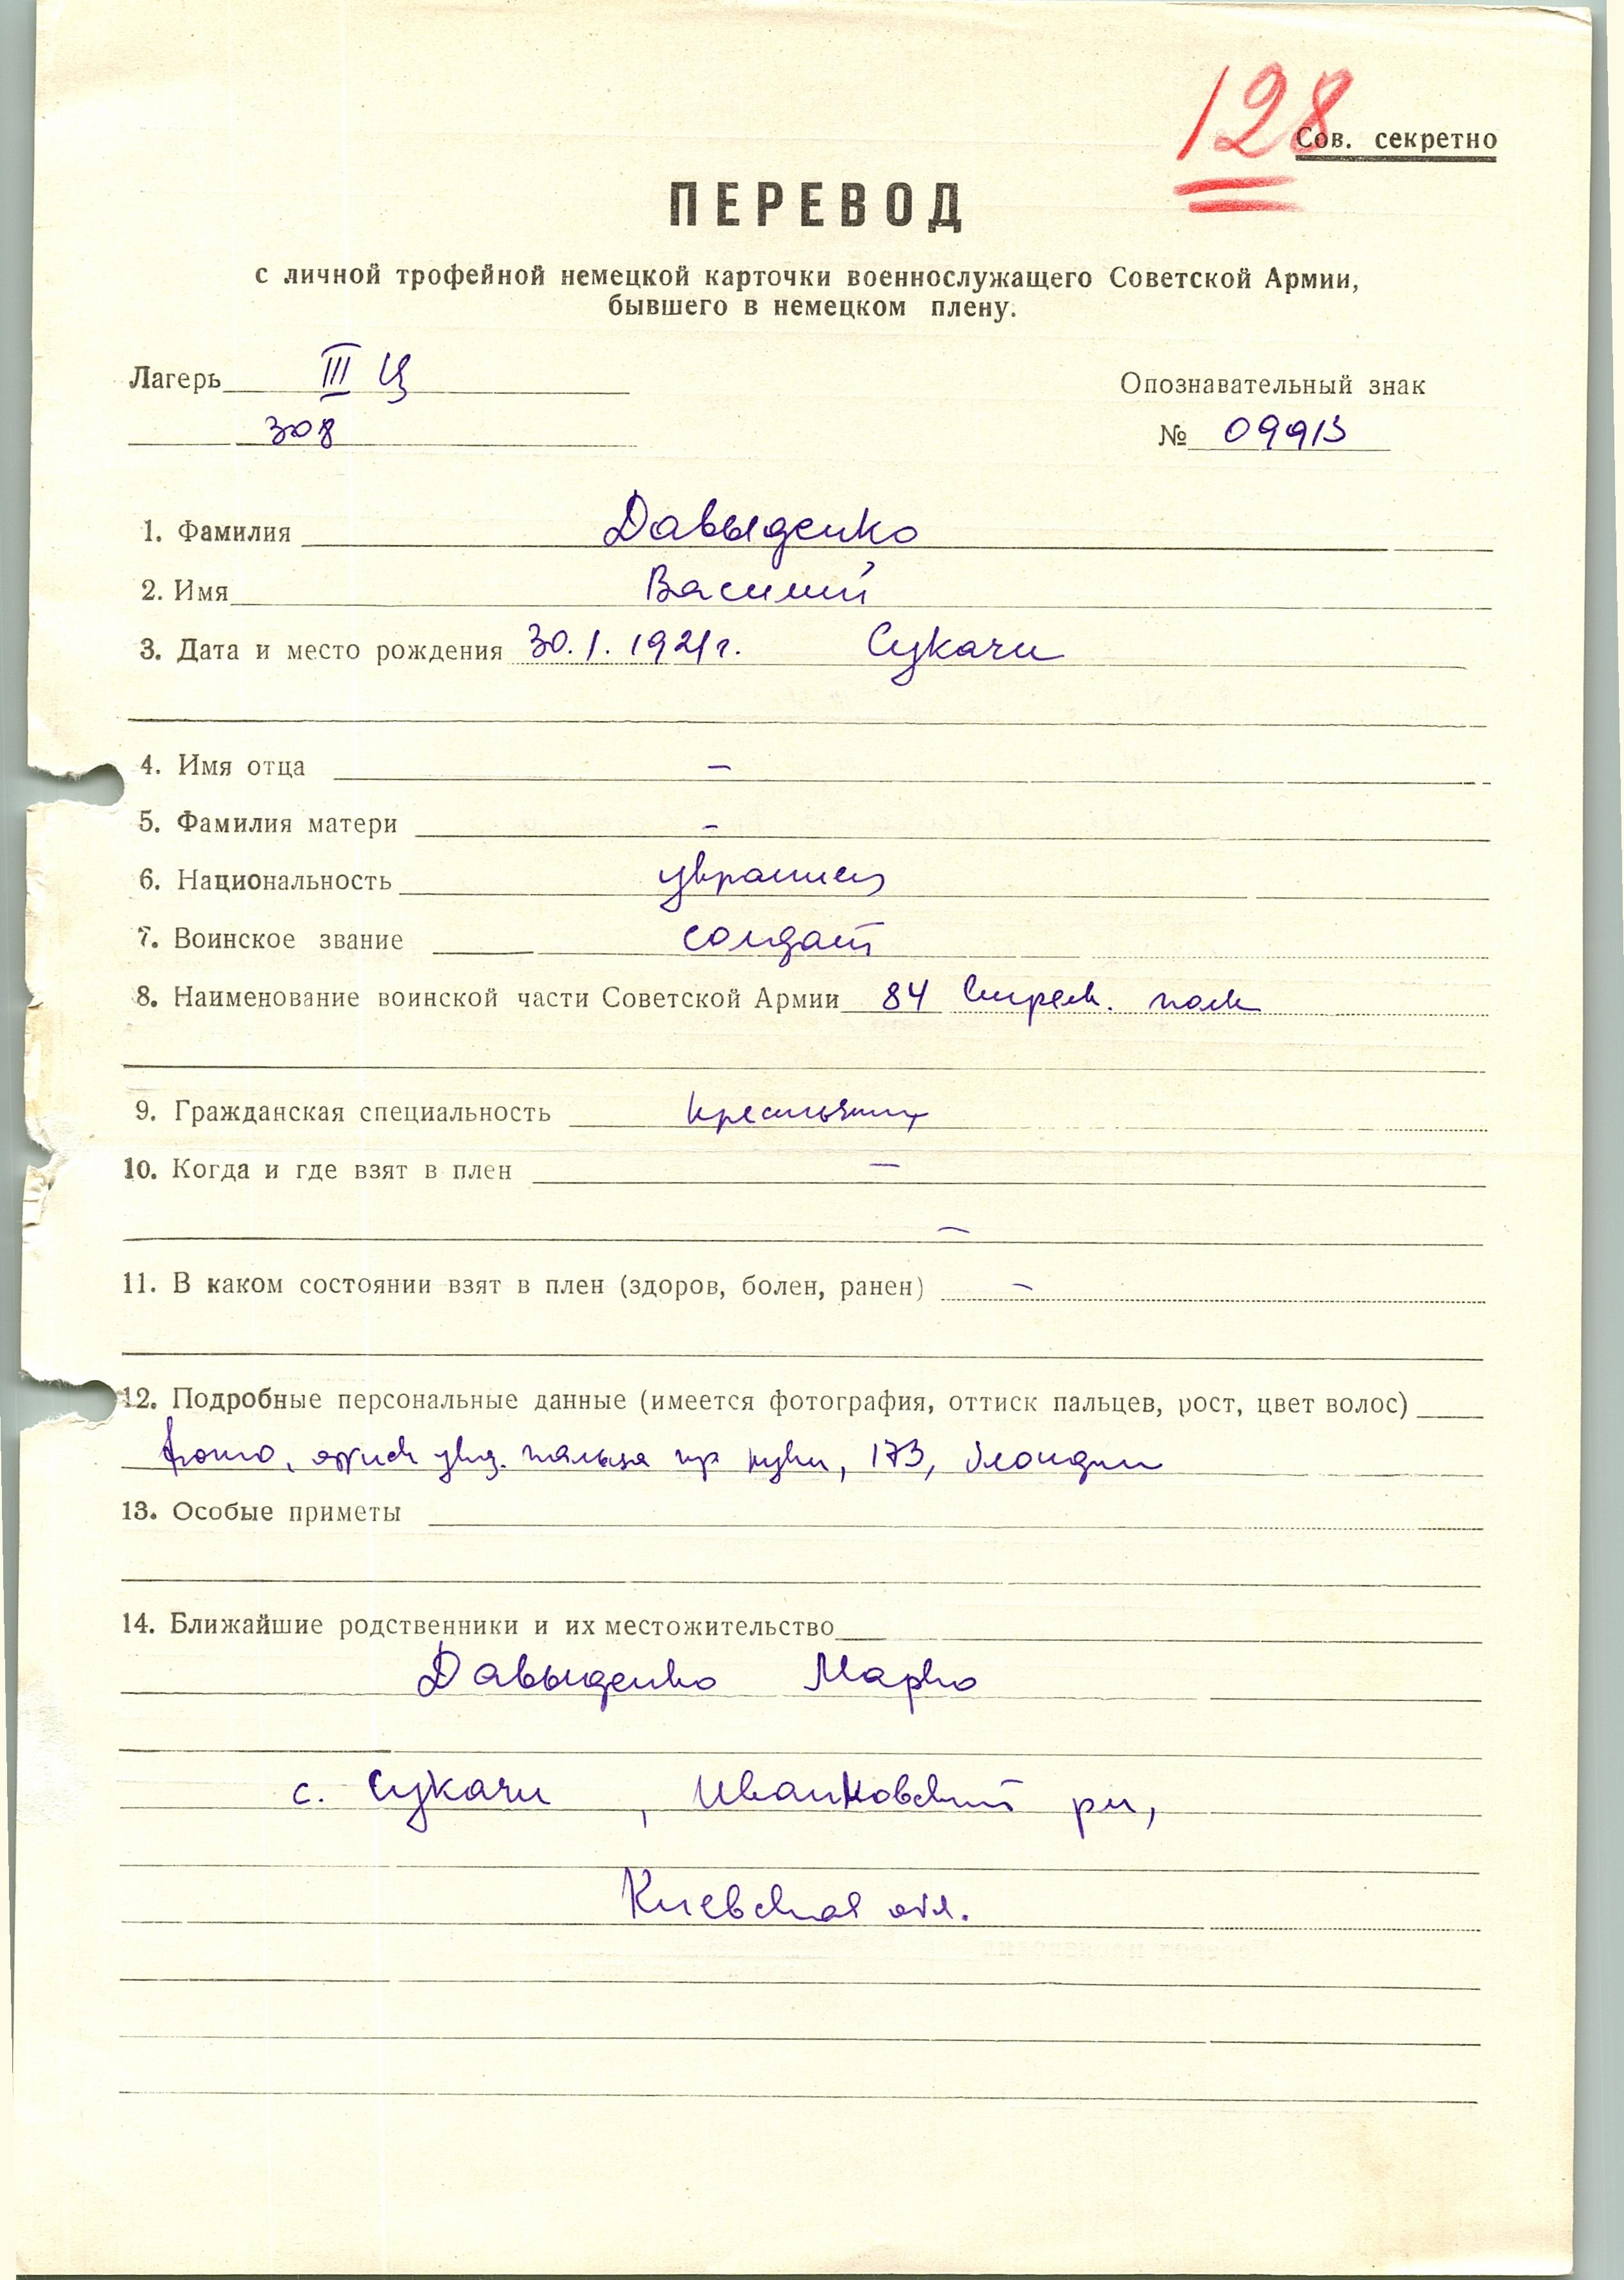 128
Сов. секретно
ПЕРЕВОД
с личной трофейной немецкой карточки военнослужащего Советской Армии,
бывшего в немецком плену.
Лагерь III Ц
Опознавательный знак
308
№ 09913
1. Фамилия Давыденко
2. Имя Василий
3. Дата и место рождения 30.1.1921г. Сукачи
4. Имя отца –
5. Фамилия матери –
6. Национальность украинец
7. Воинское звание солдат
8. Наименование воинской части Советской Армии 84 Стрелк. полк
9. Гражданская специальность крестьянин
10. Когда и где взят в плен –
–
11. В каком состоянии взят в плен (здоров, болен, ранен) –
12. Подробные персональные данные (имеется фотография, оттиск пальцев, рост, цвет волос)
фото, указ. пальца пр руки, 173, блондин
13. Особые приметы
14. Ближайшие родственники и их местожительство
Давыденко Марко
с. Сукачи, Иванковский рн,
Киевская обл.